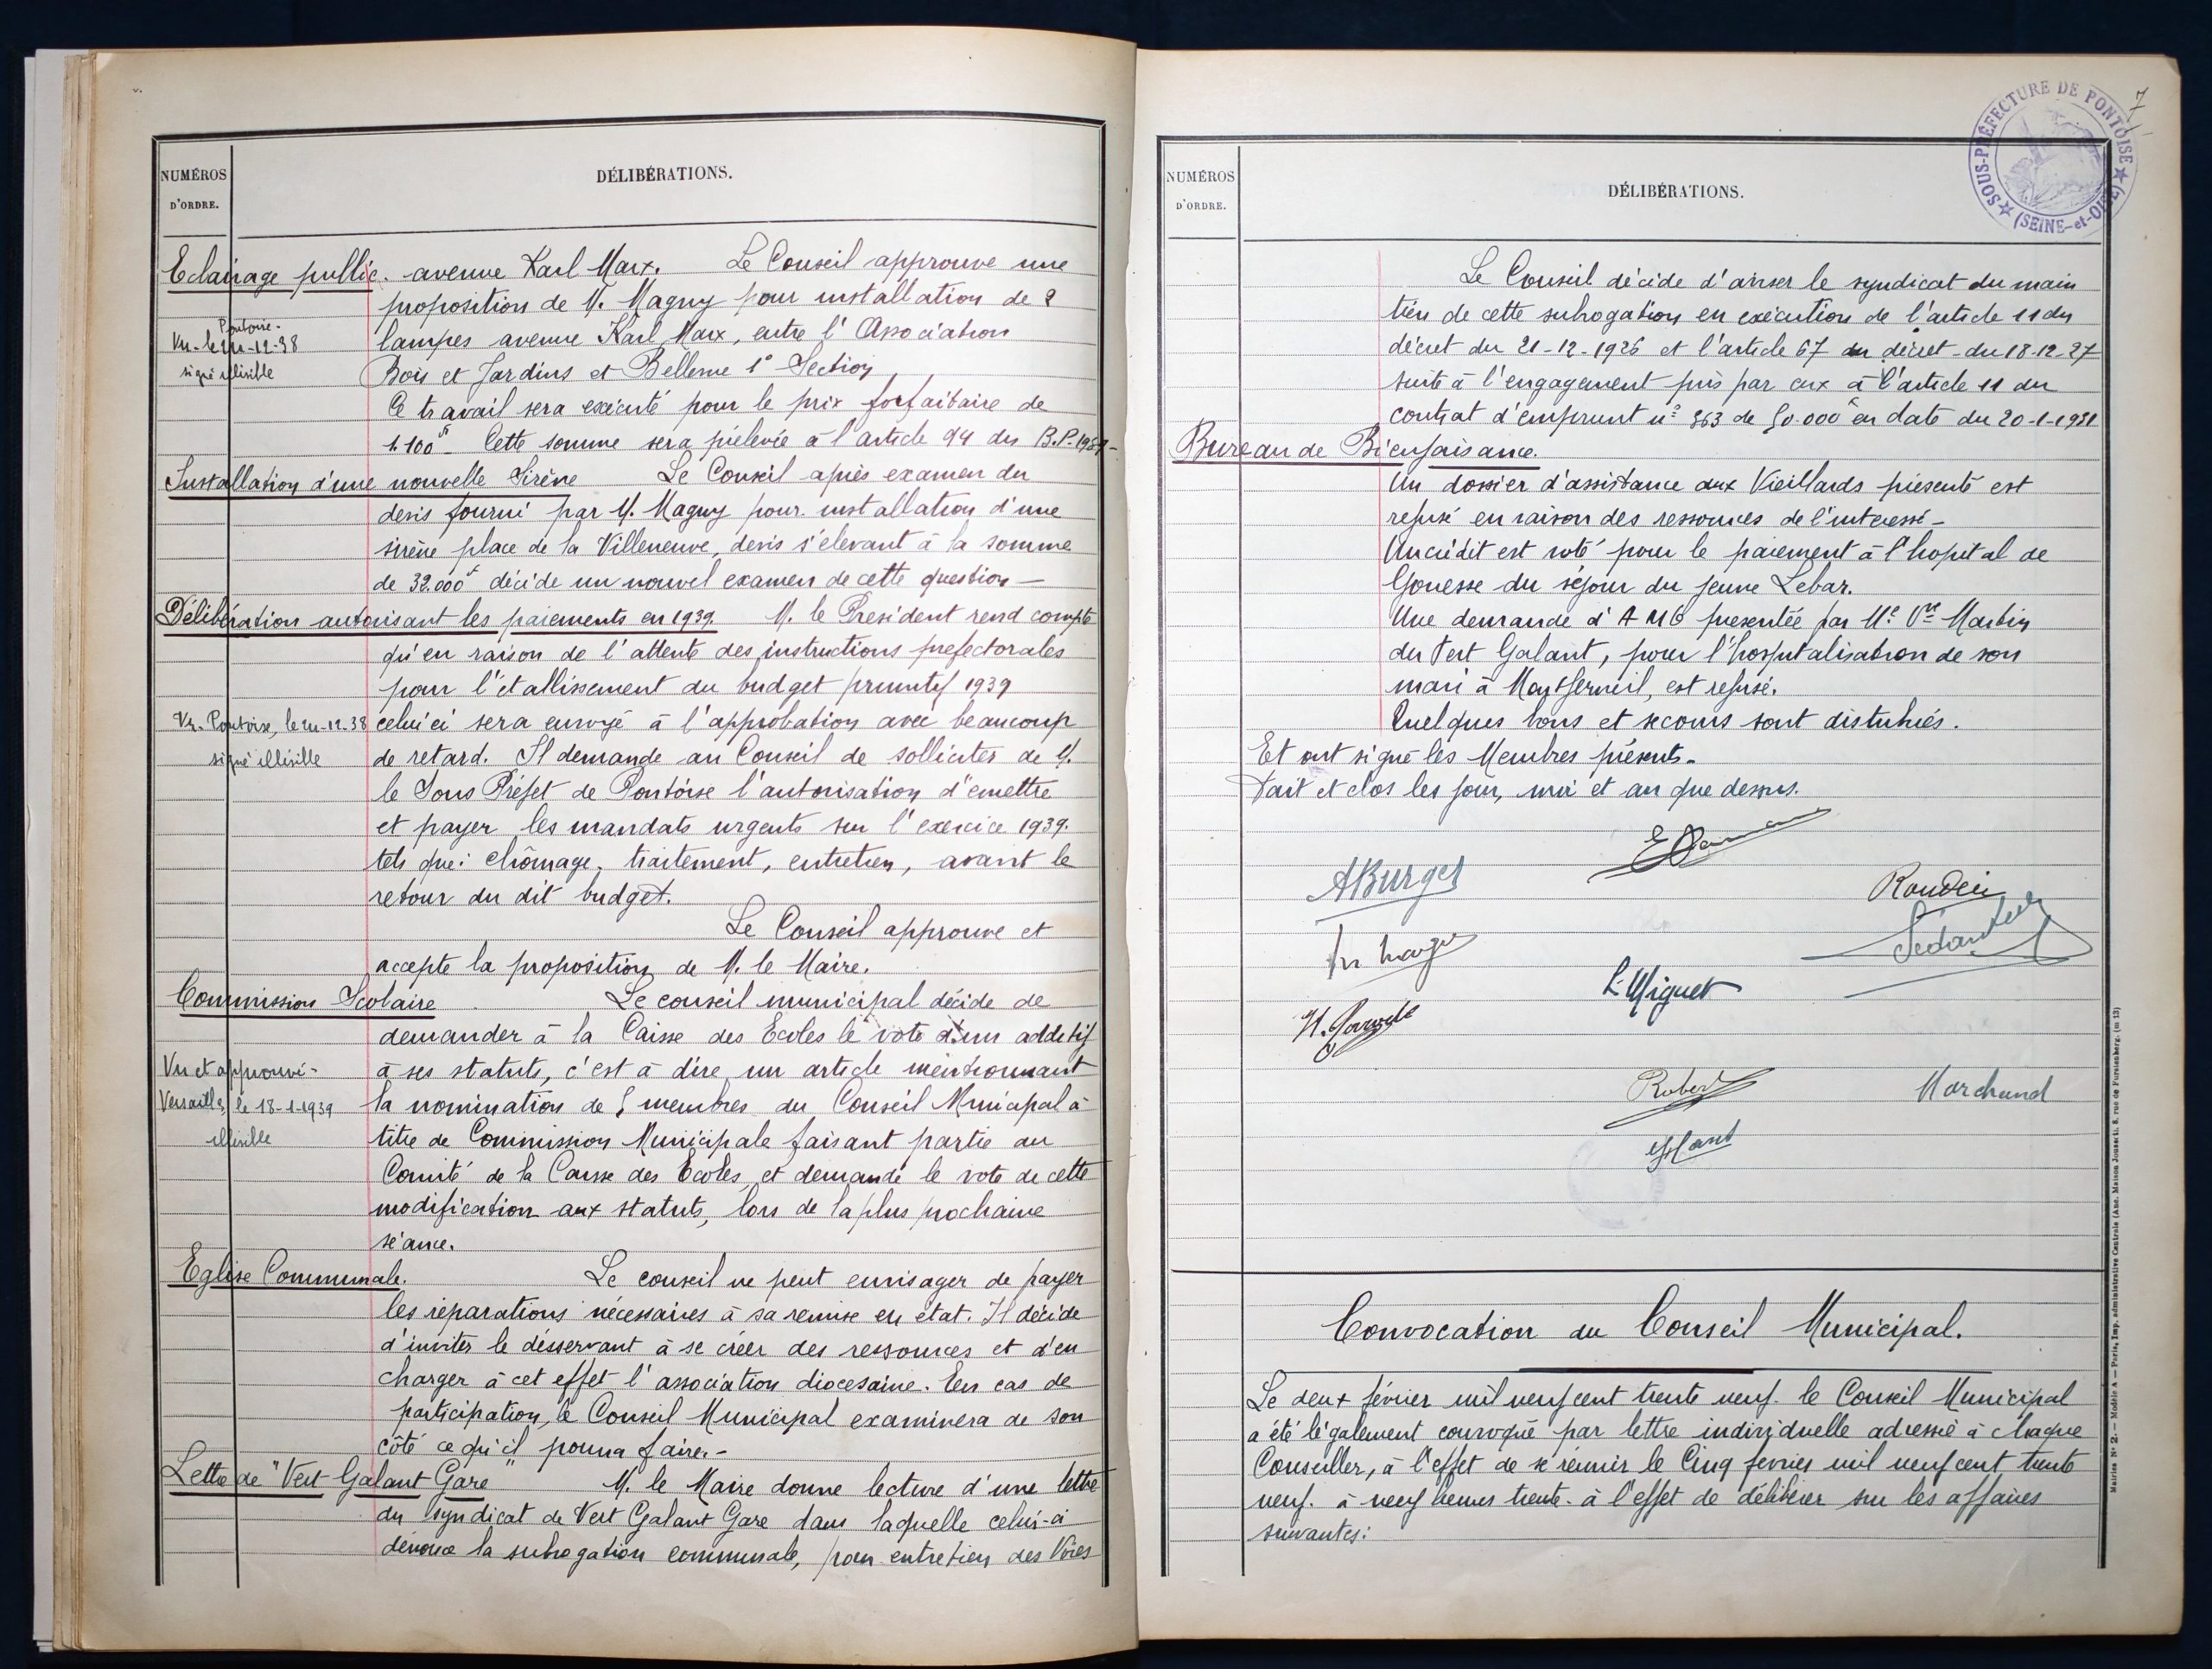 NUMÉROS
D'ORDRE.
DÉLIBÉRATIONS.
Eclairage public. avenue Karl Marx. Le Conseil approuve une
proposition de M. Magny pour installation de 2
Pontoise.
Vu-le -12-38
signé illisible
lampes avenue Karl Marx, entre l'Association
Bois et Jardins et Bellevue 1° Section
Ce travail sera exécuté pour le prix forfaitaire de
1.100f Cette somme sera prélevée à l'article 94 du B.P.
Installation d'une nouvelle Sirène Le Conseil après examen du
devis fourni par M. Magny pour installation d'une
sirène place de la Villeneuve, devis s'élevant à la somme
de 32.000f décide un nouvel examen de cette question-
Délibération autorisant les paiements en 1939. M. le President rend compte
qu'en raison de l'attente des instructions prefectorales
pour l'établissement du budget primitif 1939
Vu. Pontoise, le -12-38
signé illisible
celui ci sera envoyé à l'approbation avec beaucoup
de retard. Il demande au Conseil de solliciter de M.
le Sous Préfet de Pontoise l'autorisation d'émettre
et payer les mandats urgents sur l'exercice 1939.
tels que: chômage, traitement, entretien, avant le
retour du dit budget.
Le Conseil approuve et
accepte la proposition de M. le Maire.
Commission Scolaire Le conseil municipal décide de
demander à la Caisse des Ecoles le vote d'un additif
Vu et approuvé-
Versailles, le 18-1-1939
illisible
à ses statuts, c'est à dire un article mentionnant
la nomination de 5 membres du Conseil Municipal à
titre de Commission Municipale faisant partie au
Comité de la Caisse des Ecoles, et demande le vote de cette
modification aux statuts, lors de la plus prochaine
séance.
Eglise Communale. Le conseil ne peut envisager de payer
les réparations nécessaires à sa remise en état. Il décide
d'inviter le désservant à se créer des ressources et d'en
charger à cet effet l'association diocesaine. En cas de
participation, le Conseil Municipal examinera de son
côté ce qu'il pourra faire.-
Lettre de "Vert Galant Gare" M. le Maire donne lecture d'une lettre
du syndicat de Vert Galant Gare dans laquelle celui-ci
dénonce la subrogation communale, pour entretien des Voies
NUMÉROS
D'ORDRE.
DÉLIBÉRATIONS.
7
SOUS-PRÉFECTURE DE PONTOISE
(SEINE-et-OISE)
Le Conseil décide d'aviser le syndicat du main
tien de cette subrogation en exécution de l'article 11 du
décret du 21-12-1926 et l'article 67 du décret-du 18-12-27
suite à l'engagement pris par eux à l'article 11 du
contrat d'emprunt n° 363 de 50.000f en date du 20-1-1931
Bureau de Bienfaisance.
Un dossier d'assistance aux Vieillards présenté est
refusé en raison des ressources de l'interessé-
Un crédit est voté pour le paiement à l'hopital de
Gonesse du séjour du jeune Lebar.
Une demande d'AMG presentée par Me Vve Martin
du Vert Galant, pour l'hospitalisation de son
mari à Montfermeil, est refusé.
Quelques bons et secours sont distribués.
Et ont signé les Membres présents-
Fait et clos les jour, mois et an que dessus.
ABurger
L. Miguet
Robert
Marchand
Convocation du Conseil Municipal.
Le deux février mil neuf cent trente neuf. le Conseil Municipal
a été légalement convoqué par lettre individuelle adressée à chaque
Conseiller, à l'effet de se réunir le Cinq fevrier mil neuf cent trente
neuf. à neuf heures trente. à l'effet de délibérer sur les affaires
suivantes:
Mairies N° 2. — Modèle A — Paris, Imp. administrative Centrale (Anc. Maison Jousset), 8, rue de Furstenberg. (m 13)